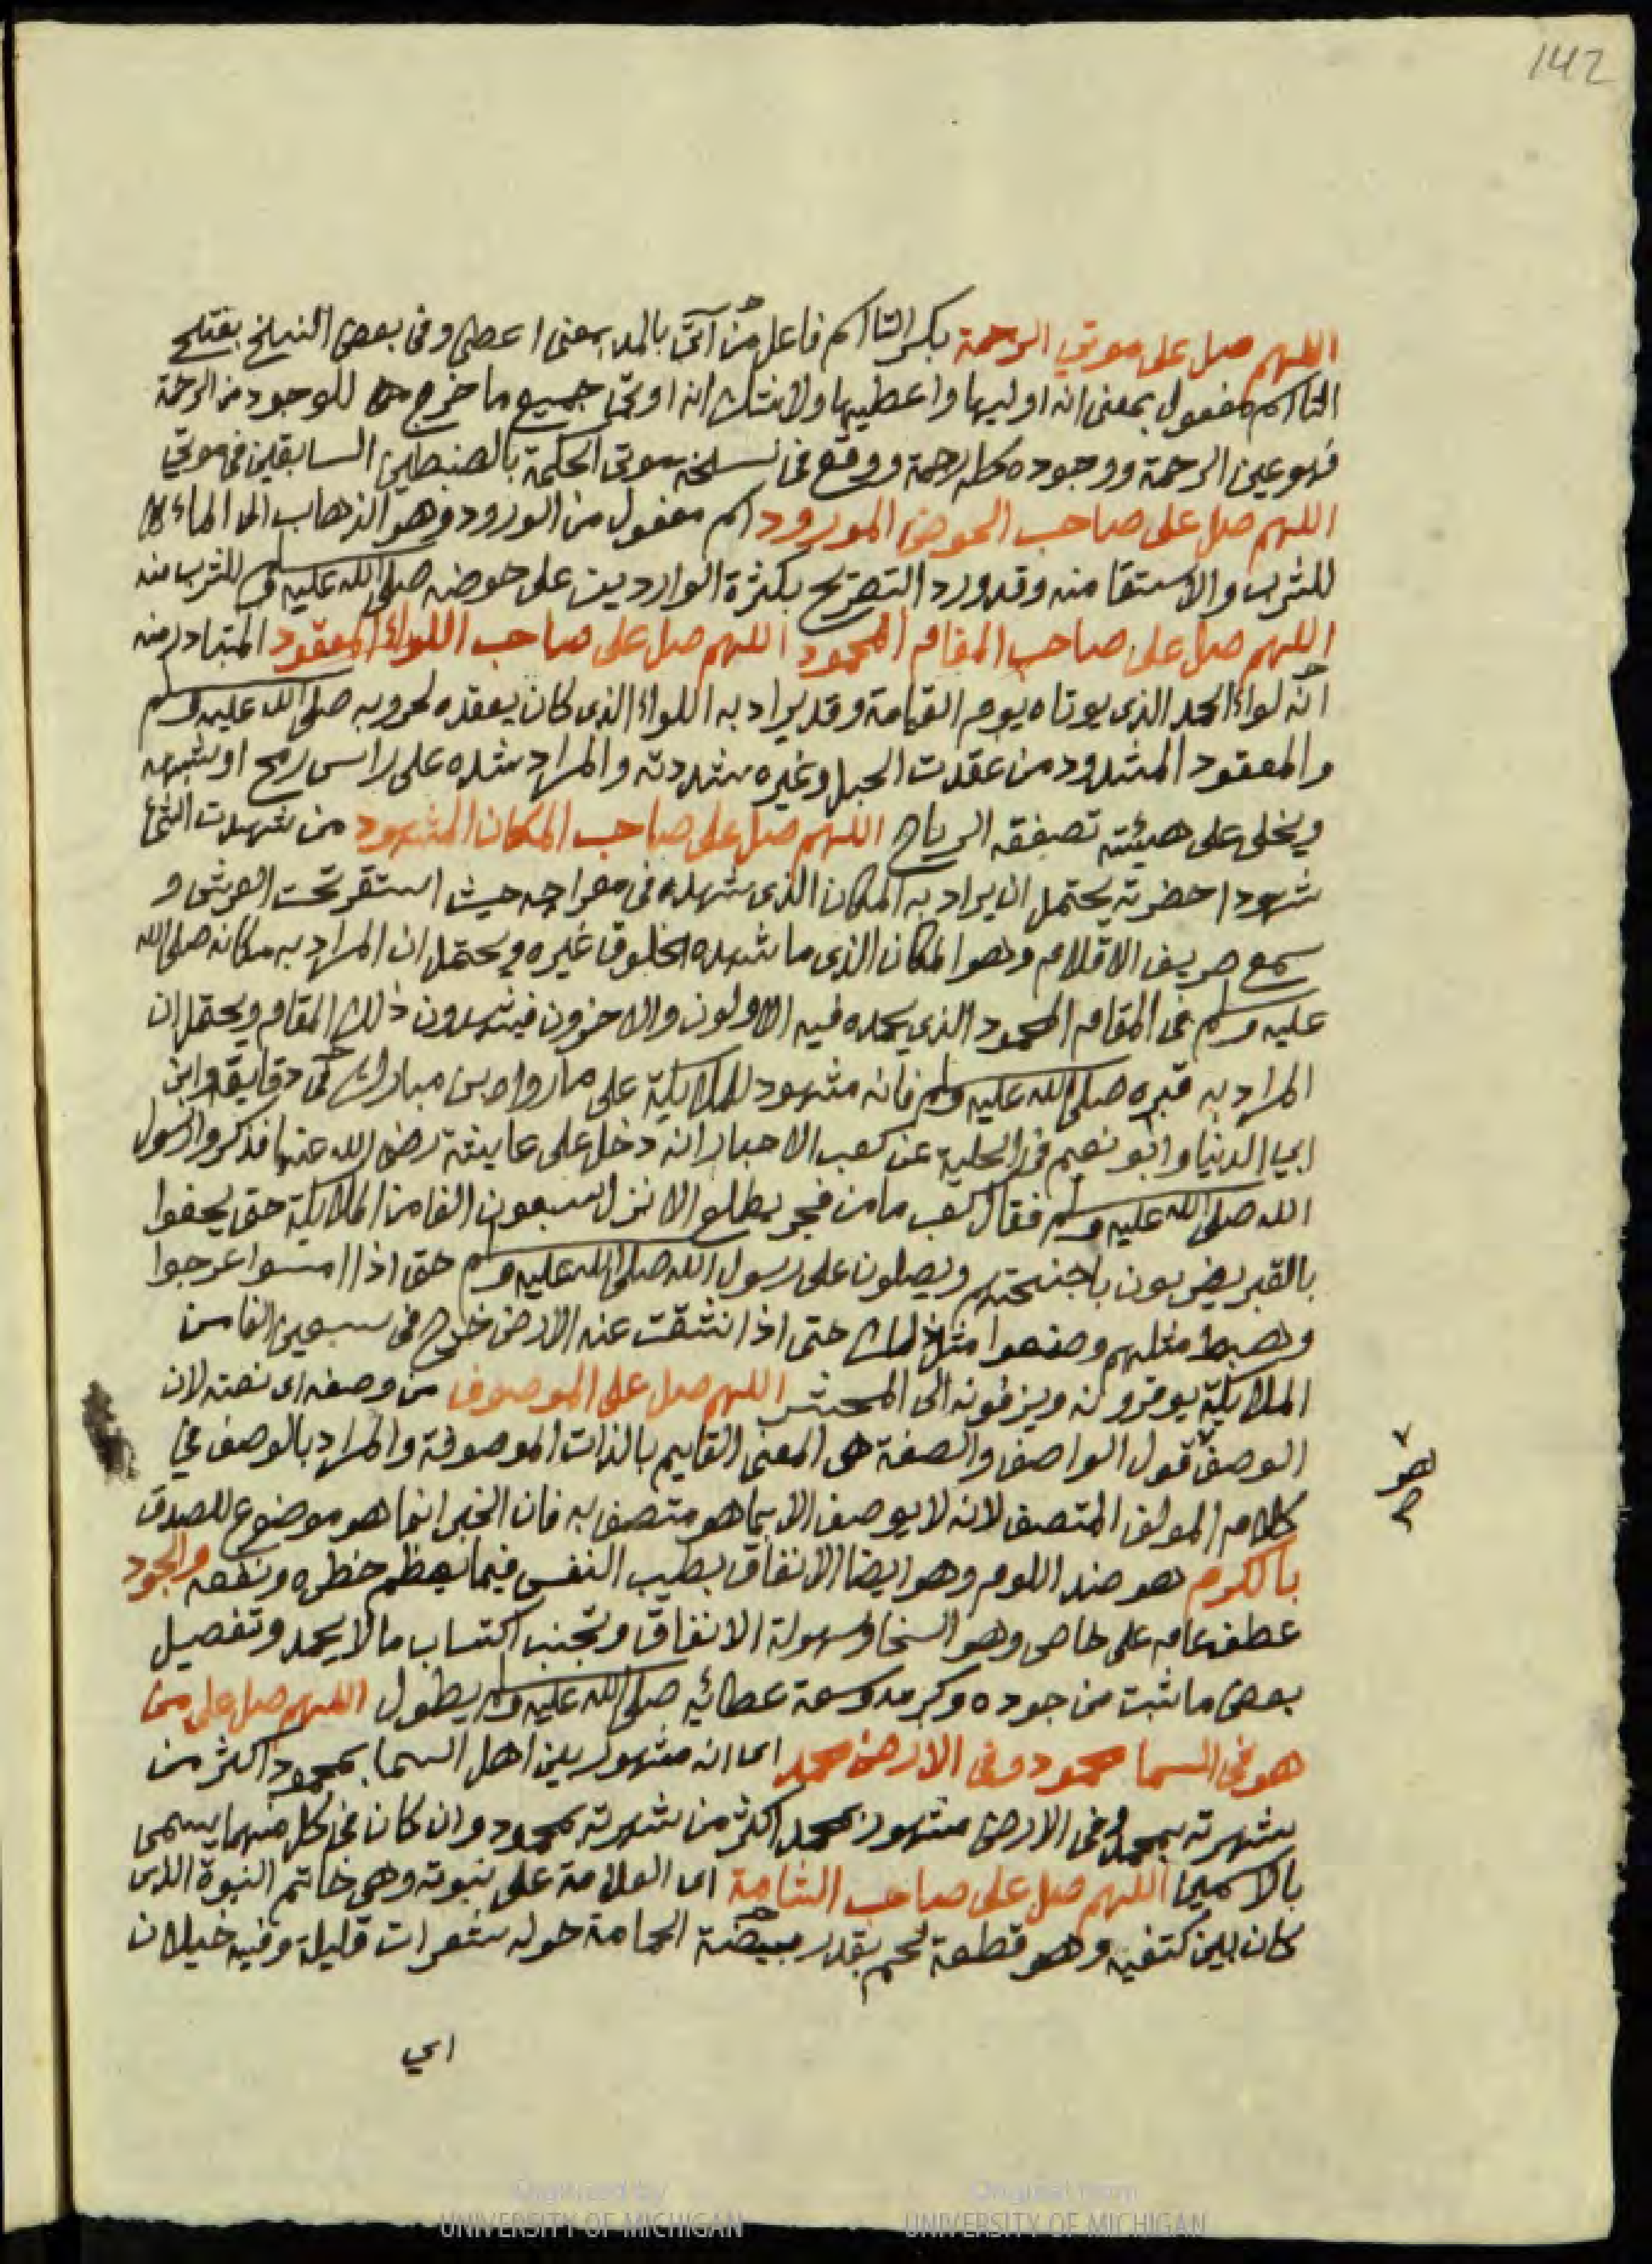 142
اللهم صل على موتي الرحمة بكسر التا اسم فاعل من آتى بالمد بمعنى اعطى وفى بعض النسخ بفتح
التا اسم مفعول بمعنى انه اوليها واعطيها ولا شك انه اوتى جميع ما خرج للوجود من الرحمة
فهو عين الرحمة ووجوده كله رحمة ووقع فى نسخة موتى الحكمة بالضبطين السابقين فى موتي
اللهم صل على صاحب الحوض المورود اسم مفعول من الورود وهو الذهاب الى الماء
للشرب والاستقا منه وقد ورد التصريح بكثرة الواردين على حوضه صلى الله عليه وسلم للشرب منه
اللهم صل على صاحب المقام المحمود اللهم صل على صاحب اللواء المعقود المتبادر منه
انه لواء الحمد الذى يوتاه يوم القيامة وقد يراد به اللواء الذى كان يعقده لحروبه صلى الله عليه وسلم
والمعقود المشدود من عقدت الحبل وغيره شددته والمراد شده على راس رمح او شبهه
ويخلى على هيئته تصفقه الرياح اللهم صل على صاحب المكان المشهود من شهدت الشئ
شهودا حضرته يحتمل ان يراد به المكان الذى شهده فى معراجه حيث استقر تحت العرش و
سمع صريف الاقلام وهو المكان الذى ما شهده مخلوق غيره ويحتمل ان المراد به مكانه صلى الله
عليه وسلم فى المقام المحمود الذي يحمده فيه الاولون والاخرون فيشهدون ذلك المقام ويحتمل ان
المراد به قبره صلى الله عليه وسلم فانه مشهود للملايكة على ما رواه بن مبارك فى دقايقه وابن
ابي الدنيا وابو نعيم فى الحلية عن كعب الاحبار انه دخل على عايشة رضى الله عنها فذكروا رسول
الله صلى الله عليه وسلم فقال كعب ما من فجر يطلع الا نزل سبعون الفا من الملايكة حتى يحفوا
بالقبر يضربون باجنحتهم ويصلون على رسول الله صلى الله عليه وسلم حتى اذا امسوا عرجوا
وهبط مثلهم وصنعوا مثل ذلك حتى اذا انشقت عنه الارض خرج فى سبعين الفا من
الملايكة يوقرونه ويزفونه الى المحشر اللهم صل على الموصوف من وصفه اى نعته لان
الوصف قول الواصف والصفة هى المعنى القايم بالذات الموصوفة والمراد بالوصف في
هو
كلام المولف المتصف لانه لا يوصف الا بما هو متصف به فان الخبر انما هو موضوع للصدق
بالكرم هو ضد اللوم وهو ايضا الانفاق بطيب النفس فيما يعظم خطره ونفعه والجود
عطف عام على خاص وهو السخا وسهولة الانفاق وتجنب اكتساب ما لا يحمد وتفصيل
بعض ما ثبت من جوده وكرمه وسعة عطائه صلى الله عليه وسلم يطول اللهم صل على من
هو فى السما محمود وفى الارض محمد اى انه مشهور بين اهل السما بمحمود اكثر من
شهرته بمحمد وفى الارض مشهور بمحمد اكثر من شهرته بمحمود وان كان فى كل منهما يسمى
بالاسمين اللهم صل على صاحب الشامة اى العلامة على نبوته وهى خاتم النبوة الذى
كان بين كتفيه وهو قطعة لحم بقدر بيضة الحمامة حوله شعرات قليلة وفيه خيلان
اي
Digitized by
UNIVERSITY OF MICHIGAN
Original from
UNIVERSITY OF MICHIGAN